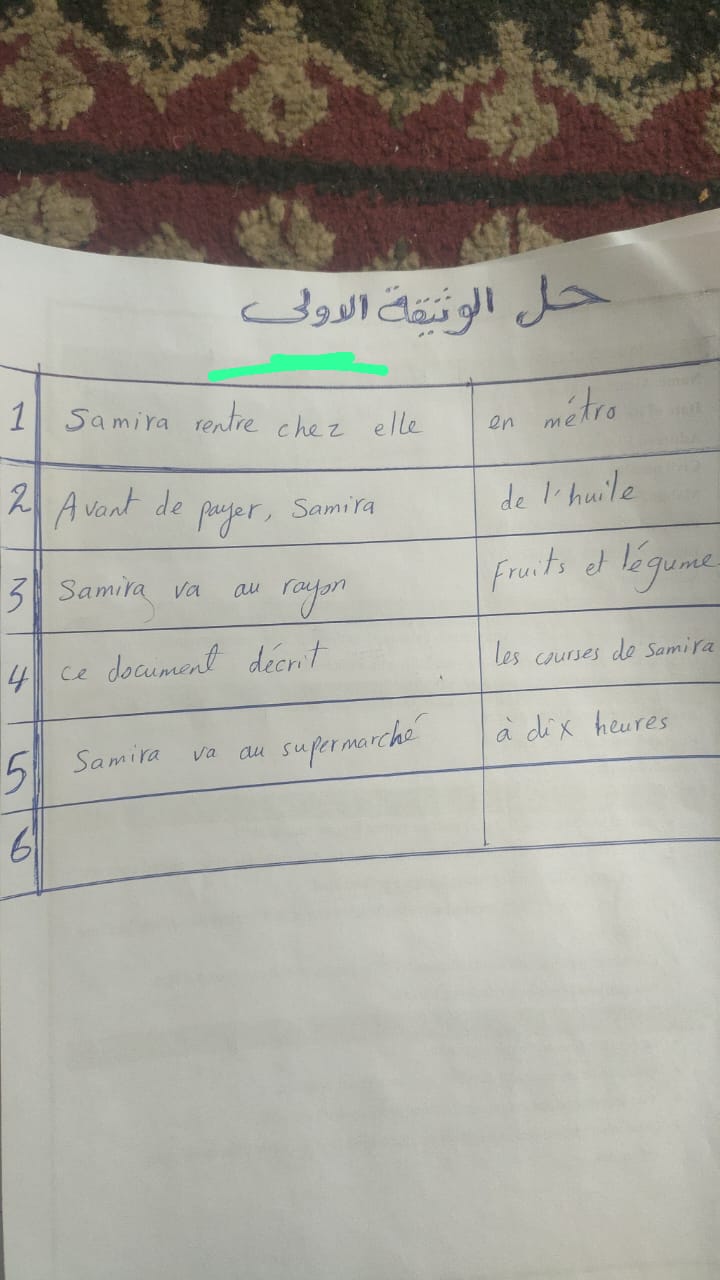 حل الوثيقة الاولى
1 Samira rentre chez elle en métro
2 Avant de payer, Samira de l'huile
3 Samira va au rayon Fruits et légume
4 ce document décrit les courses de Samira
5 Samira va au supermarché à dix heures
6